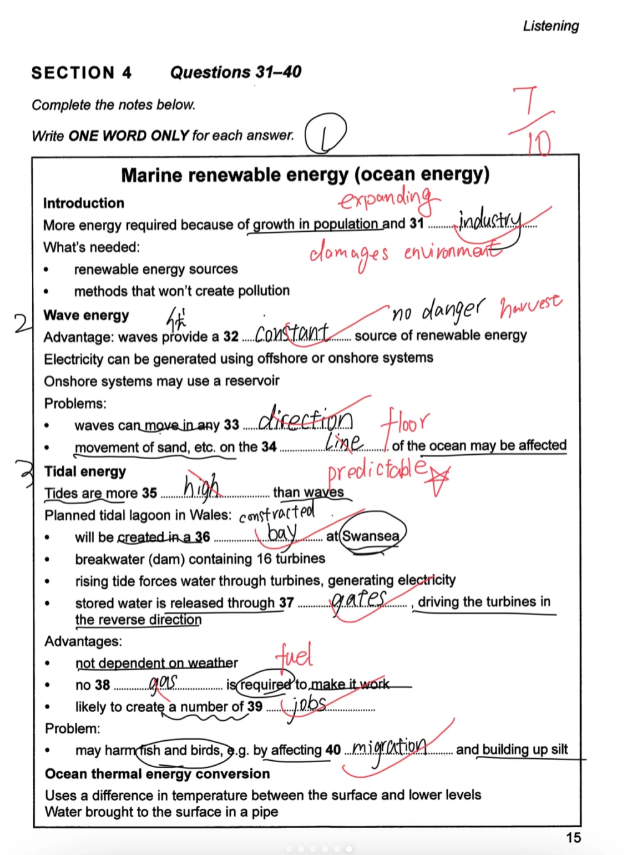 Listening
SECTION 4 Questions 31–40
Complete the notes below.
Write ONE WORD ONLY for each answer. 1
7/10
Marine renewable energy (ocean energy)
Introduction
expanding
More energy required because of growth in population and 31 industry
What's needed:
damages environment
• renewable energy sources
• methods that won't create pollution
2 Wave energy
no danger harvest
Advantage: waves provide a 32 constant source of renewable energy
Electricity can be generated using offshore or onshore systems
Onshore systems may use a reservoir
Problems:
• waves can move in any 33 direction
floor
• movement of sand, etc. on the 34 line of the ocean may be affected
3 Tidal energy
predictable
Tides are more 35 high than waves
Planned tidal lagoon in Wales: constracted
• will be created in a 36 bay at Swansea
• breakwater (dam) containing 16 turbines
• rising tide forces water through turbines, generating electricity
• stored water is released through 37 gates, driving the turbines in
the reverse direction
Advantages:
• not dependent on weather
fuel
• no 38 gas is required to make it work
• likely to create a number of 39 jobs
Problem:
• may harm fish and birds, e.g. by affecting 40 migration and building up silt
Ocean thermal energy conversion
Uses a difference in temperature between the surface and lower levels
Water brought to the surface in a pipe
15